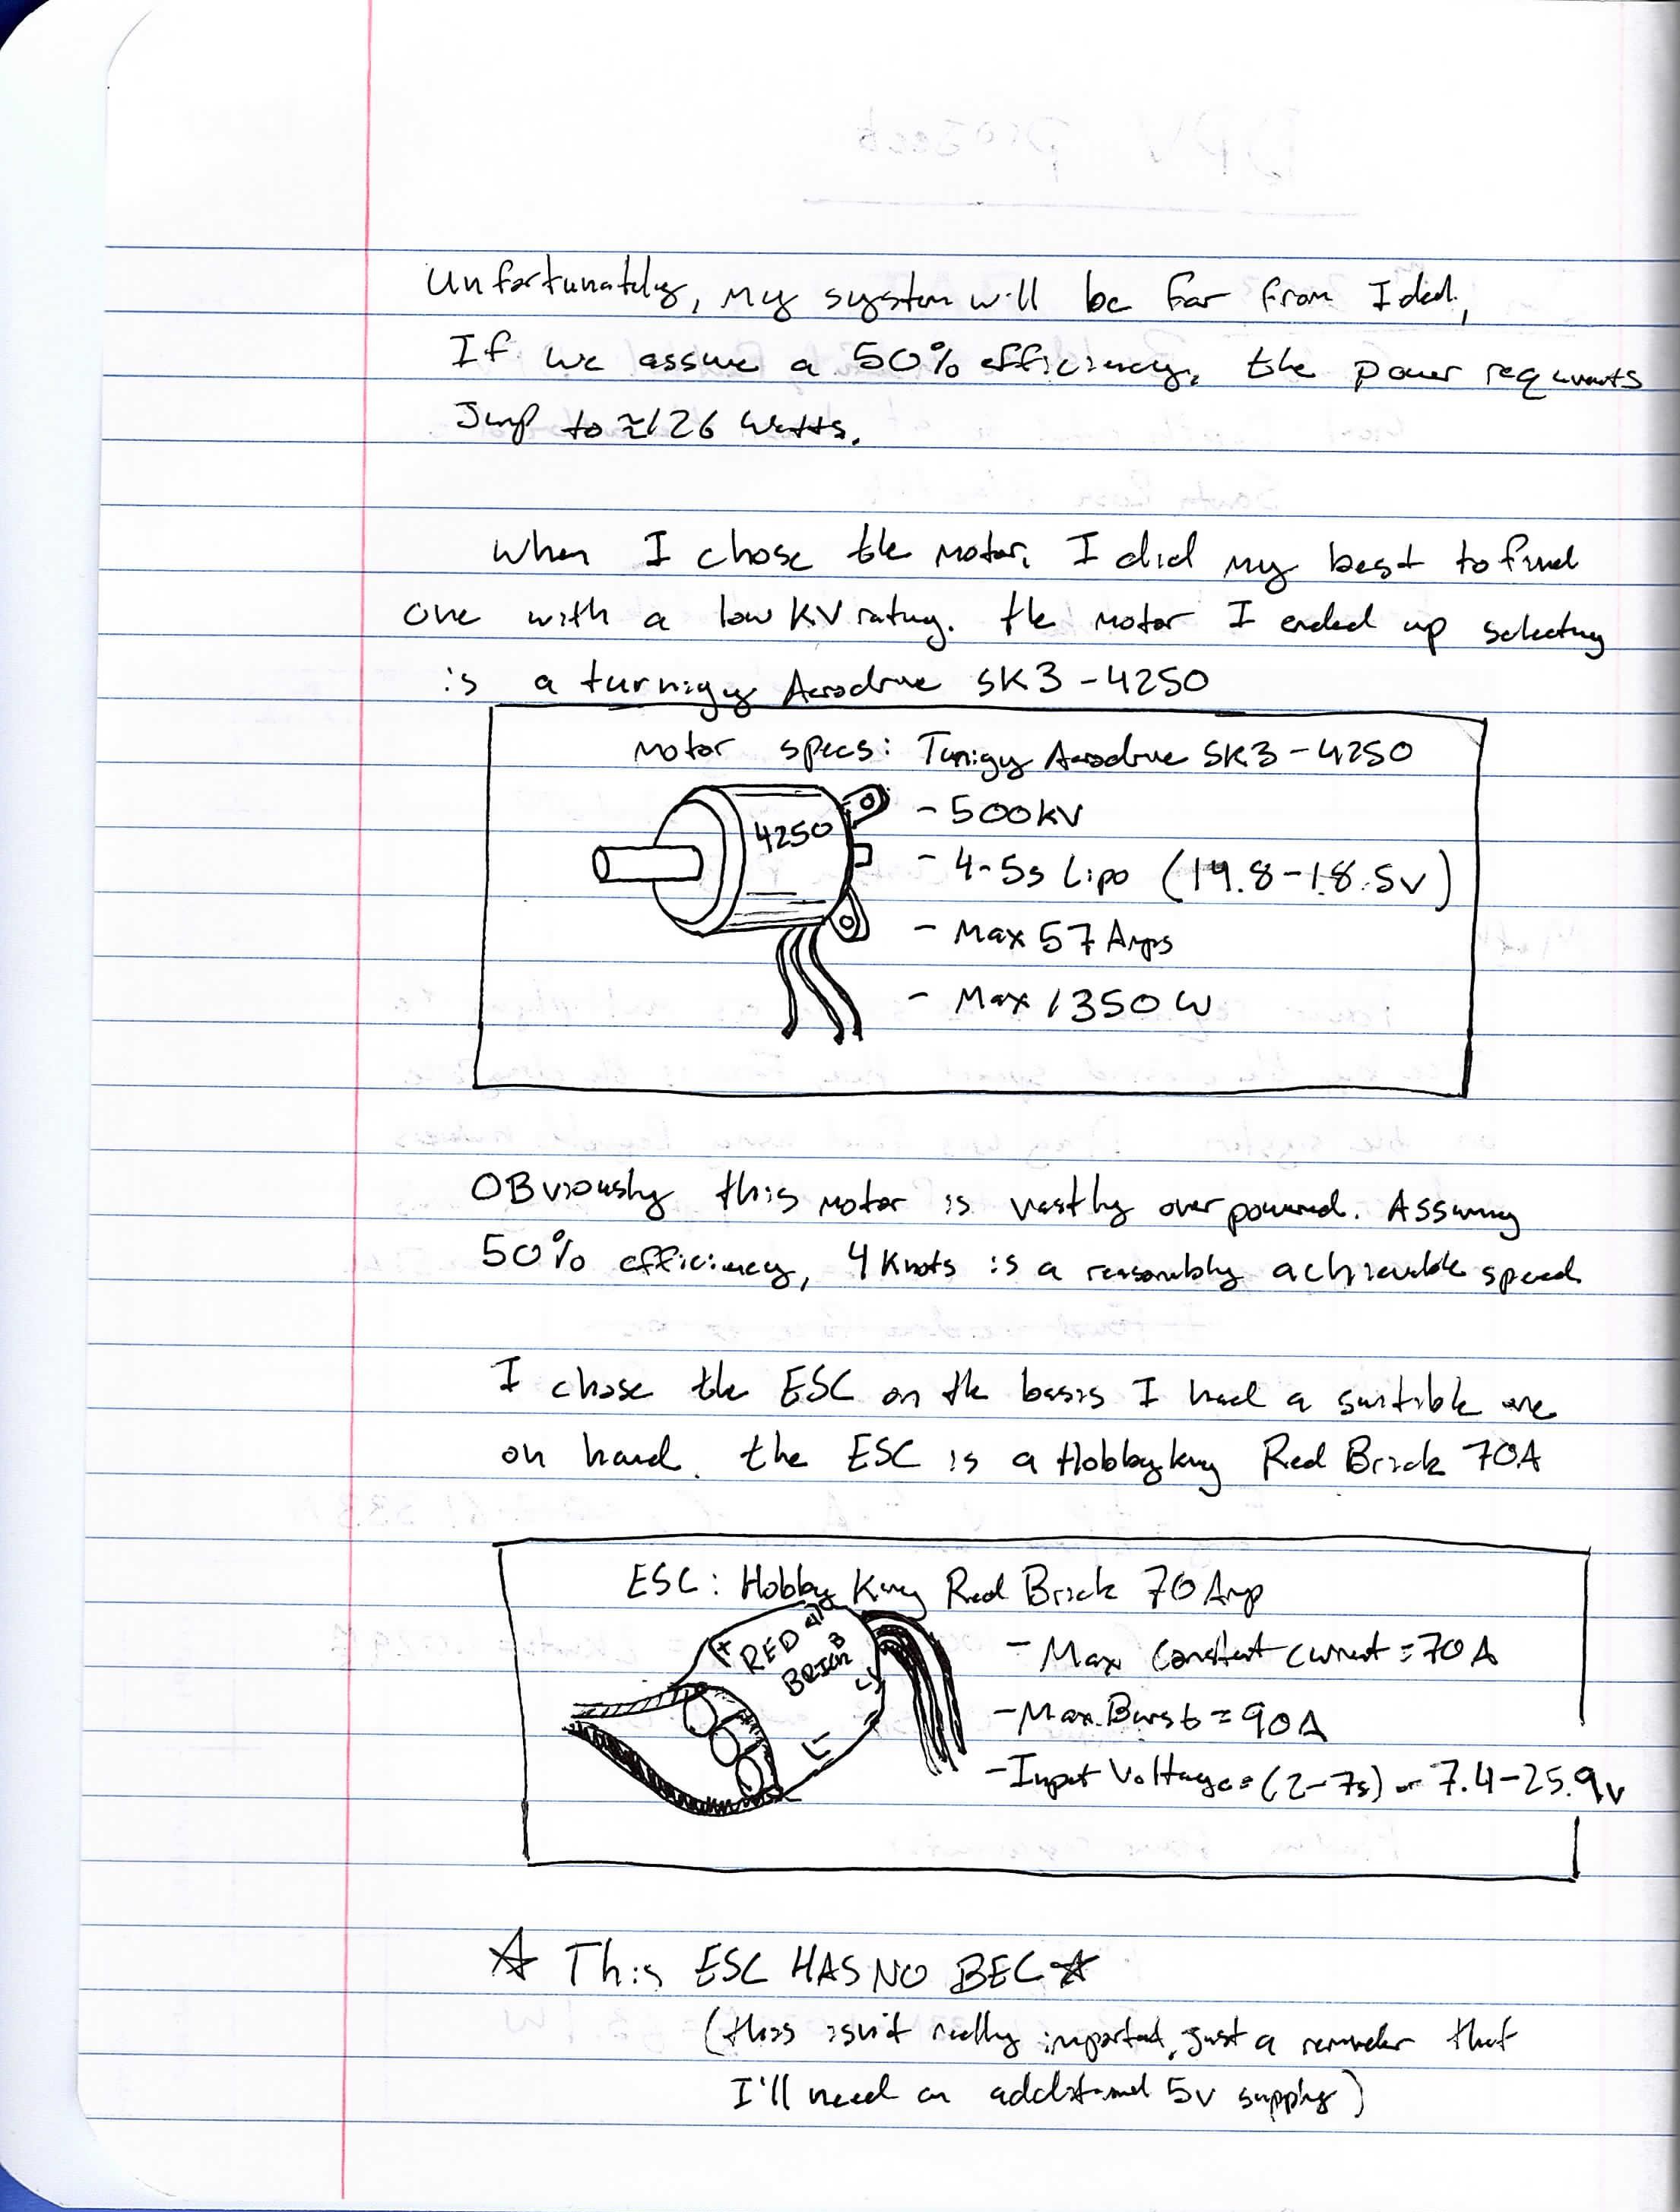 Unfortunately, my system will be far from Ideal,
If we assume a 50% efficiency, the power requirments
Jump to ≈126 Watts.
When I chose the motor, I did my best to find
one with a low KV rating. the motor I ended up selecting
is a turnigy Aerodrive SK3-4250
Motor specs: Turnigy Aerodrive SK3-4250
4250
- 500kV
- 4-5s Lipo (14.8-18.5v)
- Max 57 Amps
- Max 1350 W
OBviously this motor is vastly over powered. Assuming
50% efficiency, 4 Knots is a reasonably achievable speed
I chose the ESC on the basis I had a suitible one
on hand. the ESC is a Hobbyking Red Brick 70A
ESC: Hobby King Red Brick 70 Amp
RED
BRICK
- Max Constant current = 70A
- Max Burst = 90A
- Input Voltage = (2-7s) or 7.4-25.9v
☆ This ESC HAS NO BEC ☆
(this isn't really important, just a reminder that
I'll need an additional 5v supply)